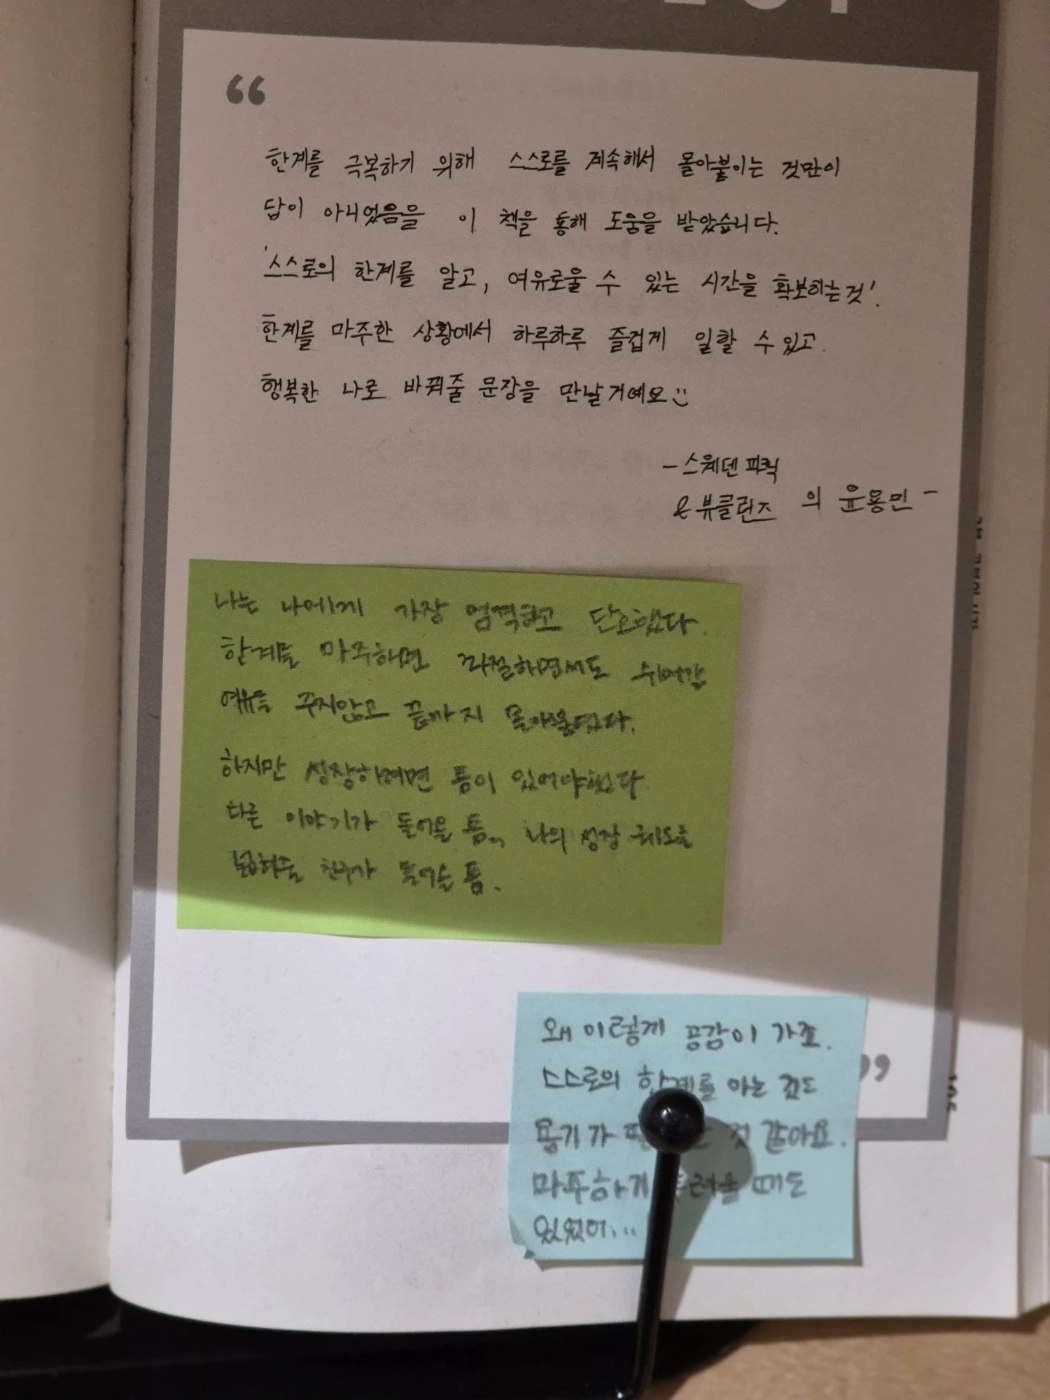 한계를 극복하기 위해 스스로를 계속해서 몰아붙이는 것만이
답이 아니었음을 이 책을 통해 도움을 받았습니다.
'스스로의 한계를 알고, 여유로울 수 있는 시간을 확보하는것'.
한계를 마주한 상황에서 하루하루 즐겁게 일할 수 있고.
행복한 나로 바꿔줄 문장을 만날거예요
-스웨덴 피클
& 뷰클런즈 의 윤용민-
나는 나에게 가장 엄격하고 단호했다.
한계를 마주하면 좌절하면서도 쉬어갈
여유를 주지않고 끝까지 몰아붙였다.
하지만 성장하려면 틈이 있어야했다
다른 이야기가 들어올 틈, 나의 성장
들어올 틈.
왜 이렇게 공감이 가죠.
스스로의 한계를 아는 것도
용기가 것 같아요.
마주하기 때도
있었어...